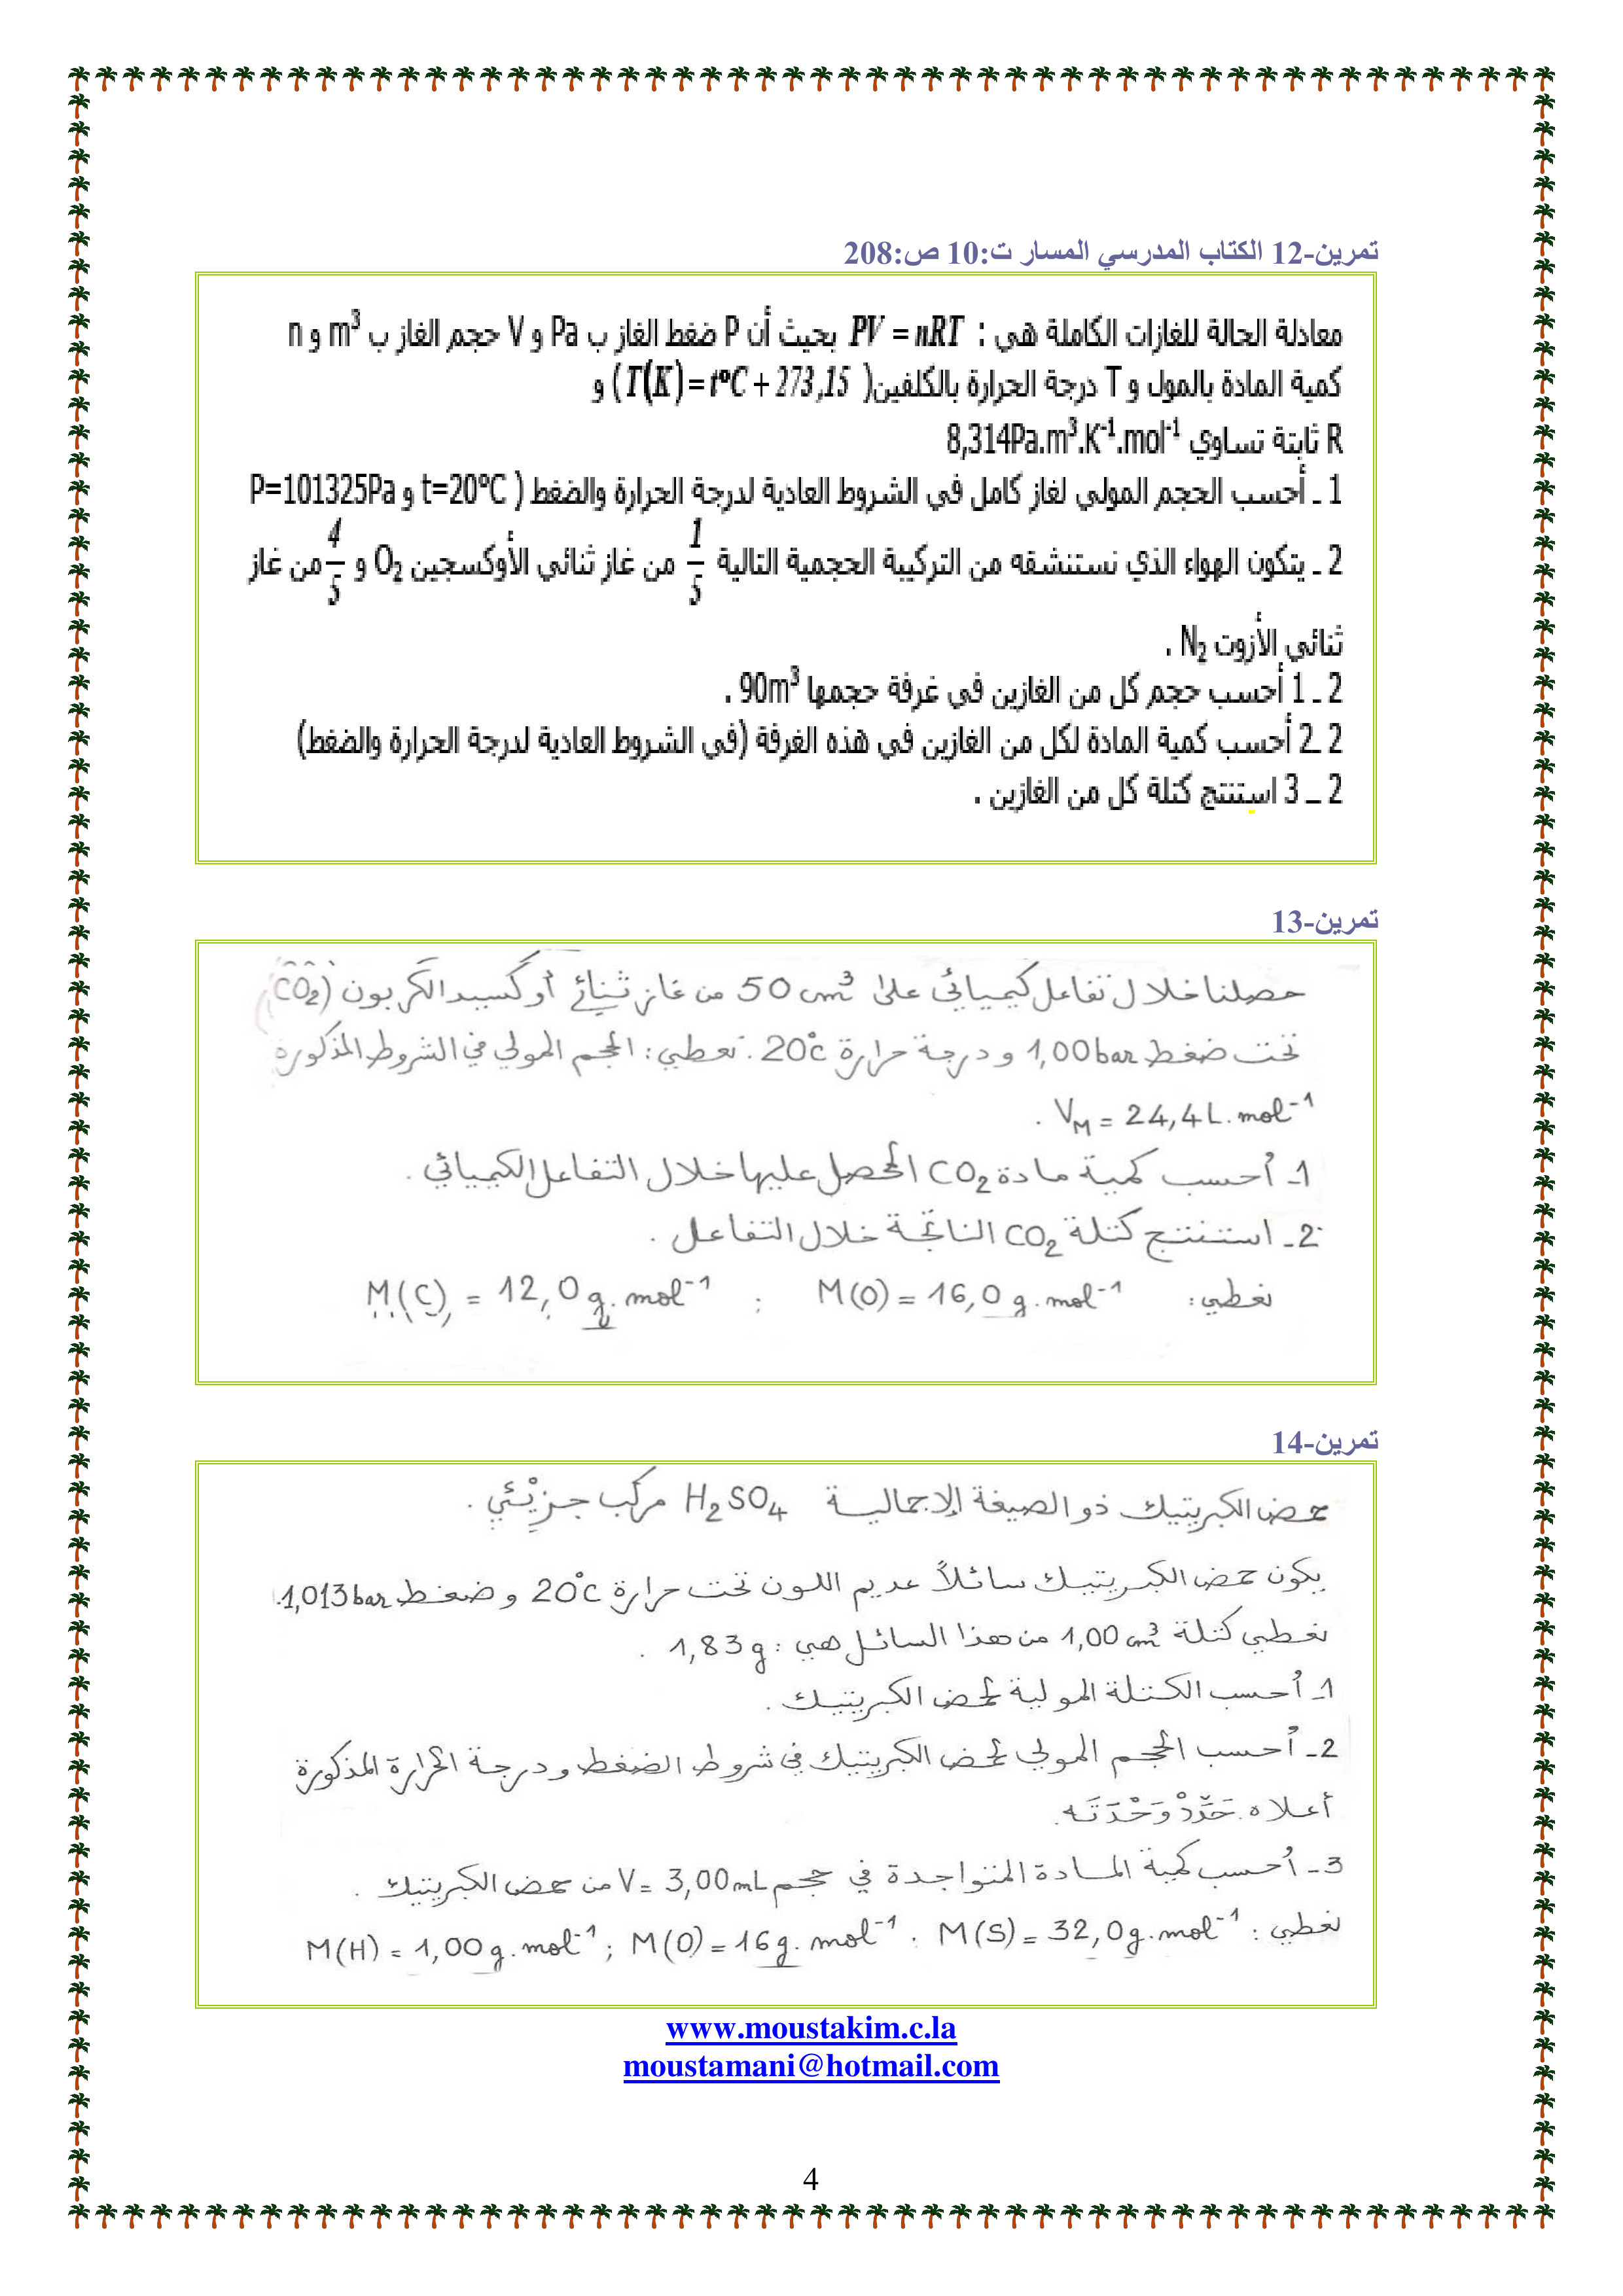 تمرين-12 الكتاب المدرسي المسار ت:10 ص:208
معادلة الحالة للغازات الكاملة هي : PV = nRT بحيث أن P ضغط الغاز ب Pa و V حجم الغاز ب m³ و n
كمية المادة بالمول و T درجة الحرارة بالكلفين( T(K) = t°C + 273,15 ) و
R ثابتة تساوي 8,314Pa.m³.K⁻¹.mol⁻¹
1 ـ أحسب الحجم المولي لغاز كامل في الشروط العادية لدرجة الحرارة والضغط ( t=20°C و P=101325Pa
2 ـ يتكون الهواء الذي نستنشقه من التركيبة الحجمية التالية 1/5 من غاز ثنائي الأوكسجين O₂ و 4/5 من غاز
ثنائي الأزوت N₂ .
2 ـ 1 أحسب حجم كل من الغازين في غرفة حجمها 90m³ .
2 ـ2 أحسب كمية المادة لكل من الغازين في هذه الغرفة (في الشروط العادية لدرجة الحرارة والضغط)
2 ــ 3 استنتج كتلة كل من الغازين .
تمرين-13
حصلنا خلال تفاعل كيميائي على 50 cm³ من غاز ثنائي أوكسيد الكربون (CO₂)
تحت ضغط 1,00 bar و درجة حرارة 20°C . نعطي : الحجم المولي في الشروط المذكورة
V_M = 24,4 L.mol⁻¹ .
1ـ أحسب كمية مادة CO₂ المحصل عليها خلال التفاعل الكيميائي .
2ـ استنتج كتلة CO₂ الناتجة خلال التفاعل .
نعطي : M(O) = 16,0 g.mol⁻¹ ; M(C) = 12,0 g.mol⁻¹
تمرين-14
حمض الكبريتيك ذو الصيغة الإجمالية H₂SO₄ مركب جزيئي .
يكون حمض الكبريتيك سائلاً عديم اللون تحت حرارة 20°C و ضغط 1,013 bar.
نعطي كتلة 1,00 cm³ من هذا السائل هي : 1,83 g .
1ـ أحسب الكتلة المولية لحمض الكبريتيك .
2ـ أحسب الحجم المولي لحمض الكبريتيك في شروط الضغط و درجة الحرارة المذكورة
أعلاه . حَدِّدْ وَحْدَتَه.
3ـ أحسب كمية المادة المتواجدة في حجم V = 3,00 mL من حمض الكبريتيك .
نعطي : M(S) = 32,0 g.mol⁻¹ . M(O) = 16 g.mol⁻¹ ; M(H) = 1,00 g.mol⁻¹
www.moustakim.c.la
moustamani@hotmail.com
4